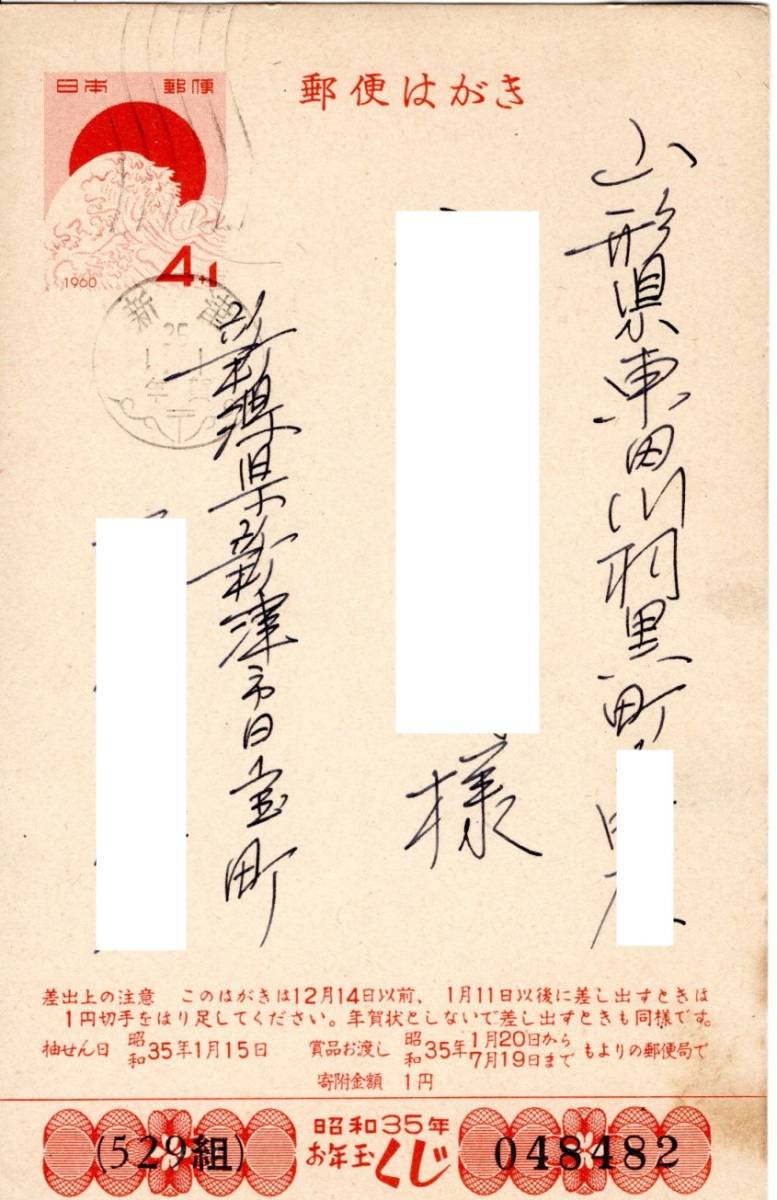 郵便はがき
日本 郵便
1960
4+1
新津
35
1.1
年賀
山形県東田川羽黒町
様
新潟県新津市日宝町
差出上の注意 このはがきは12月14日以前、1月11日以後に差し出すときは
1円切手をはり足してください。年賀状としないで差し出すときも同様です。
抽せん日 昭和35年1月15日 賞品お渡し 昭和35年 1月20日から 7月19日まで もよりの郵便局で
寄附金額 1円
(529組)
昭和35年
お年玉くじ
048482